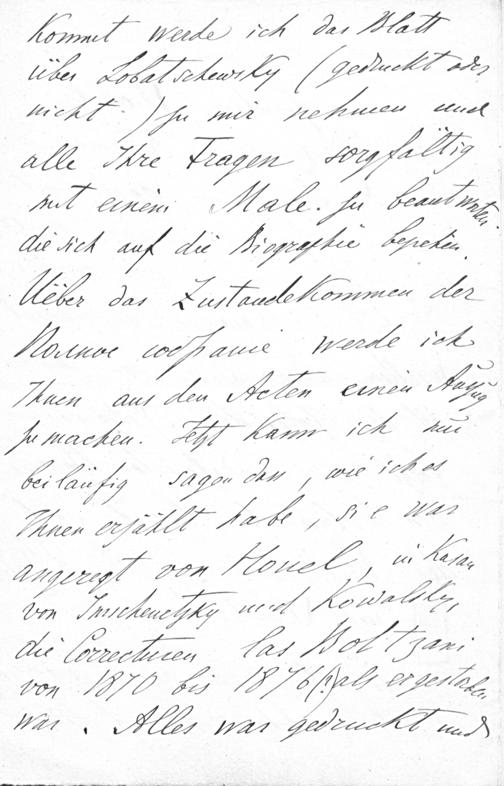 Kommt werde ich das Blatt
über Lobatschewsky (gedruckt oder
nicht) zu mir nehmen und
alle Ihre Fragen sorgfältig
mit einem Male zu beantworten
die sich auf die Biographie beziehen.
Ueber das Zustandekommen der
Полное собрание werde ich
Ihnen aus den Acten einen Auszug
zu machen. Jetzt kann ich nur
beiläufig sagen das, wie ich es
Ihnen erzählt habe, sie war
angeregt von Houel, in Kasan
von Imschenetzky und Kowalsky,
die Correcturen las Boltzani
von 1870 bis 1876(?) als er gestorben
war. Alles war gedruckt und